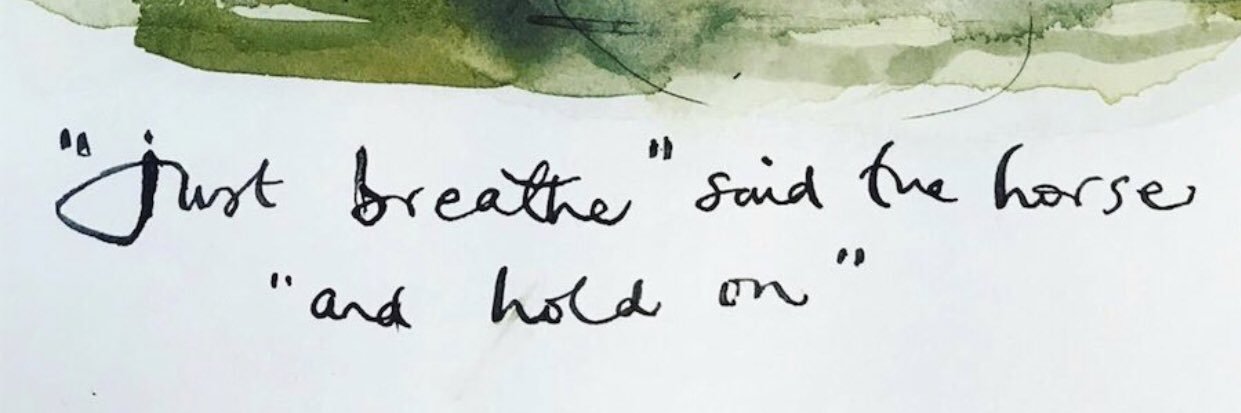 "Just breathe" said the horse
"and hold on"